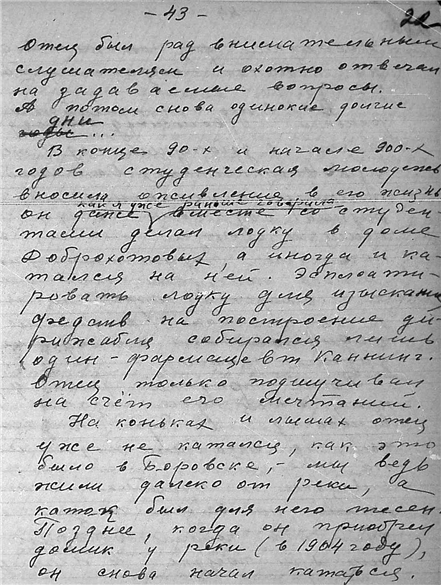 - 43 -
22
Отец был рад внимательным
слушателям и охотно отвечал
на задаваемые вопросы.
А потом снова одинокие долгие
дни
годы...
В конце 90-х и начале 900-х
годов студенческая молодежь
вносила оживление в его жизнь
как я уже раньше говорила
он даже вместе со студен
тами делал лодку в доме
Доброхотовых, а иногда и ка-
тался на ней. Эксплоати-
ровать лодку для изыскания
средств на построение ди-
рижабля собирался лишь
один - фармацевт Каннинг.
Отец только подшучивал
на счёт его мечтаний.
На коньках и лыжах отец
уже не катался, как это
было в Боровске, - мы ведь
жили далеко от реки, а
каток был для него тесен.
Позднее, когда он приобрел
домик у реки (в 1904 году),
он снова начал кататься.